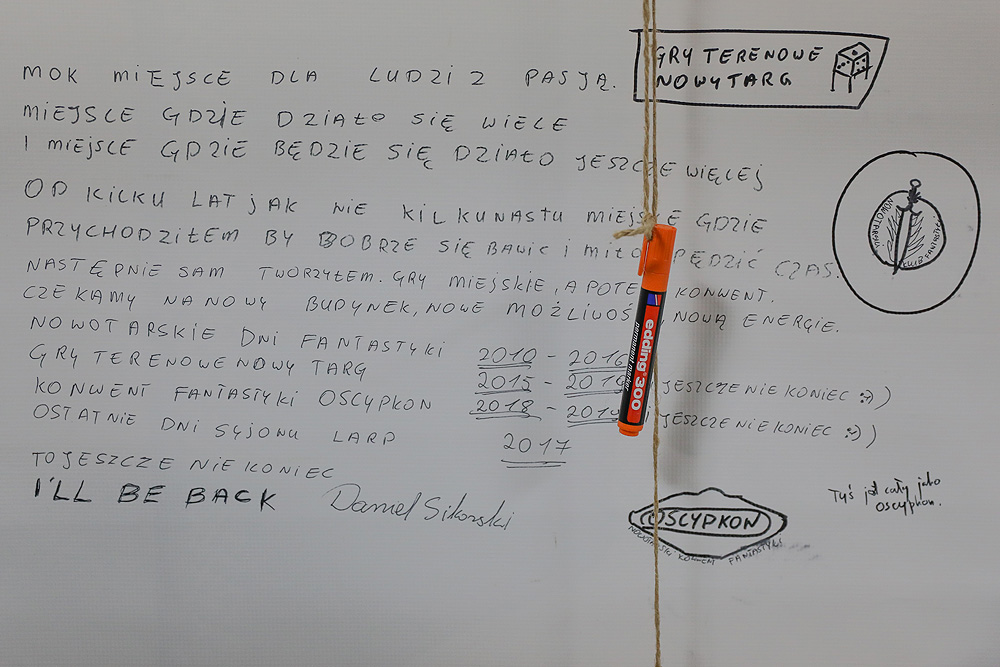 MOK MIEJSCE DLA LUDZI Z PASJĄ.
MIEJSCE GDZIE DZIAŁO SIĘ WIELE
I MIEJSCE GDZIE BĘDZIE SIĘ DZIAŁO JESZCZE WIĘCEJ
OD KILKU LAT JAK NIE KILKUNASTU MIEJSCE GDZIE
PRZYCHODZIŁEM BY DOBRZE SIĘ BAWIC I MIŁO PĘDZIĆ CZAS.
NASTĘPNIE SAM TWORZYŁEM. GRY MIEJSKIE, A POTE KONWENT.
CZEKAMY NA NOWY BUDYNEK, NOWE MOŻLIWOŚ, NOWĄ ENERGIE.
NOWOTARSKIE DNI FANTASTYKI 2010 - 2016
GRY TERENOWE NOWY TARG 2015 - 2019 (JESZCZE NIE KONIEC :))
KONWENT FANTASTYKI OSCYPKON 2018 - 2019 (JESZCZE NIE KONIEC :))
OSTATNIE DNI SYJONU LARP 2017
TO JESZCZE NIE KONIEC
I'LL BE BACK Daniel Sikorski
GRY TERENOWE
NOWY TARG
NOWOTARSKA
edding 300
permanent marker
OSCYPKON
KONWENT FANTASTYKI
Tyś jest cały jako
oscypkon.